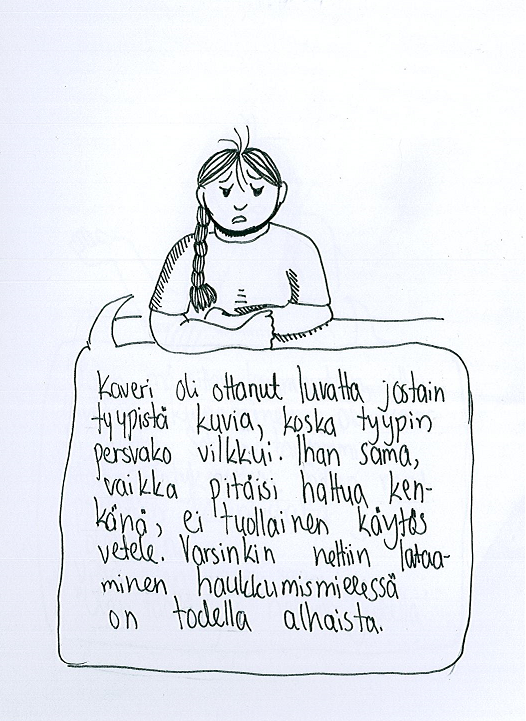 Kaveri oli ottanut luvatta jostain
tyypistä kuvia, koska tyypin
persvako vilkkui. Ihan sama,
vaikka pitäisi hattua ken-
känä, ei tuollainen käytös
vetele. Varsinkin nettiin lataa-
minen haukkumismielessä
on todella alhaista.